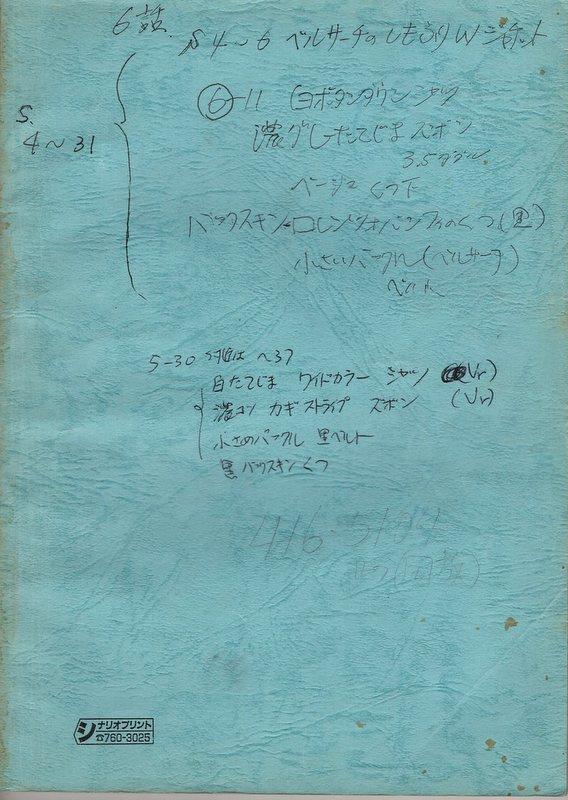 6話
S4〜6 ベルサーチのしもふりWジャケット
S.
4〜31
⑥-11 白ボタンダウンシャツ
濃グレーたてじまズボン
3.5ダブル
ベージュ くつ下
バックスキン ロレンツォバンフィのくつ(黒)
小さいバックル(ベルサーチ)
ベルト
5-30 〜37
白たてじま ワイドカラー シャツ (Vr)
濃コン カギストライプ ズボン (Vr)
小さめバックル 黒ベルト
黒バックスキンくつ
416-5194
シナリオプリント
☎760-3025